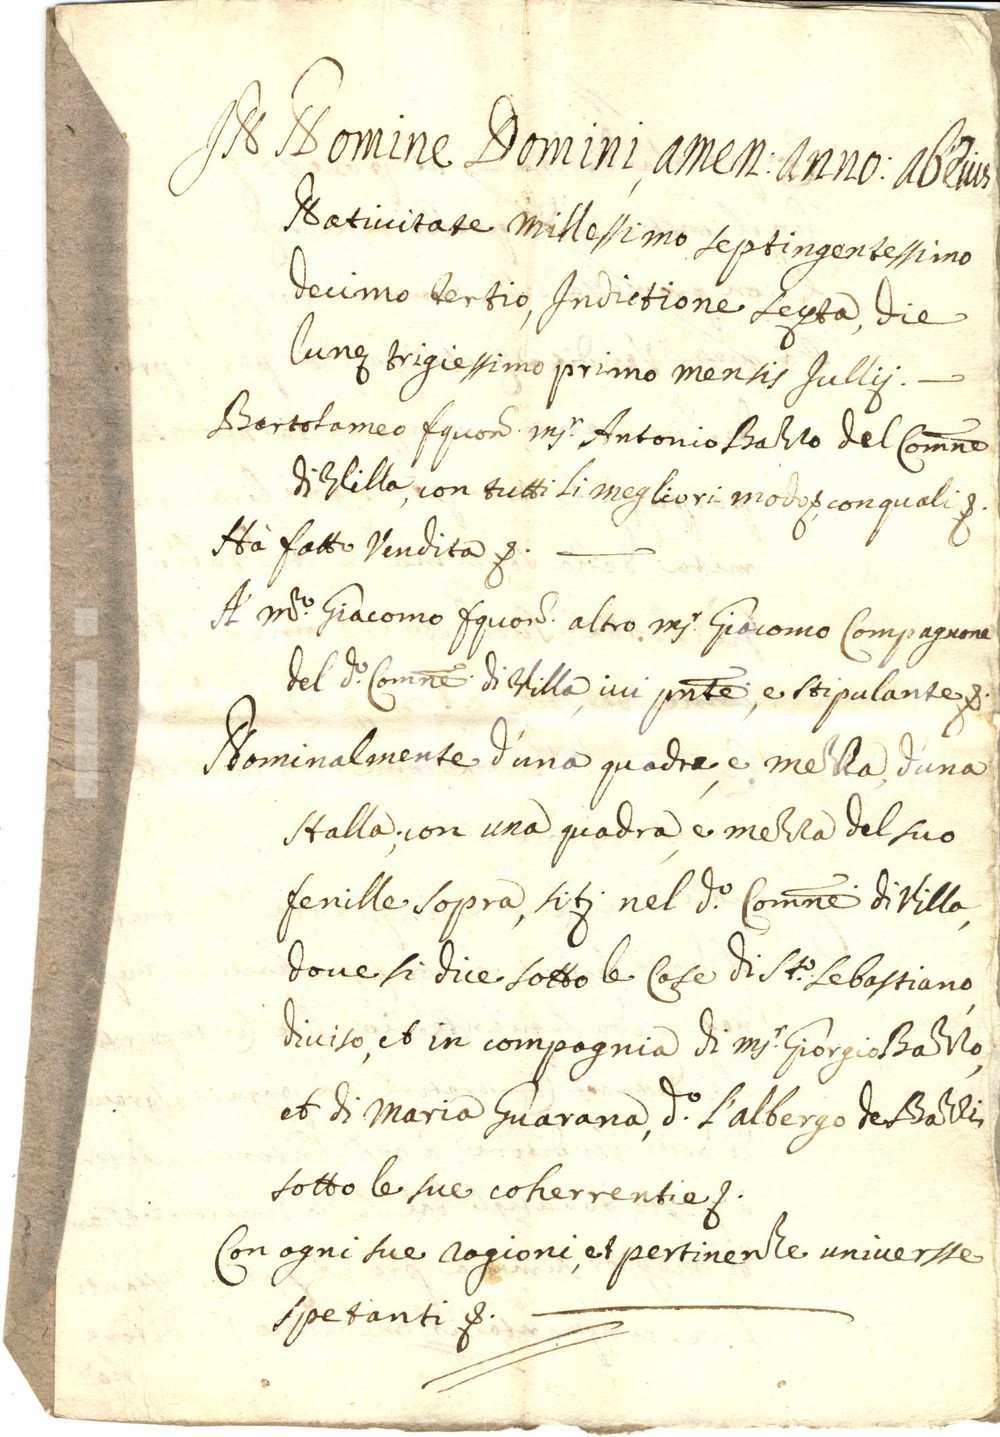 In Nomine Domini, amen: anno: ab eius
Natiuitate millessimo septingentessimo
decimo tertio, Indictione sexta, die
lunę trigiessimo primo mensis Jullij.
Bartolameo fquon. mr. Antonio Bazzo del Comne
di Villa, con tutti li megliori modi, con quali &.
Hà fatto Vendita &.
A' mro. Giacomo fquon. altro mr. Giacomo Compagnone
del do. Comne di Villa, iui pnte, e stipulante &.
Nominalmente d'una quadra, e mezza, d'una
stalla, con una quadra, e mezza del suo
fenille sopra, sitj nel do. Comne di Villa,
doue si dice sotto le Case di Sto. Sebastiano,
diuiso, et in compagnia di mr. Giorgio Bazzo,
et di Maria Guarana, do. l'albergo de Bazzi
sotto le sue coherrentie &.
Con ogni sue ragioni, et pertinenze uniuersse
spetanti &.